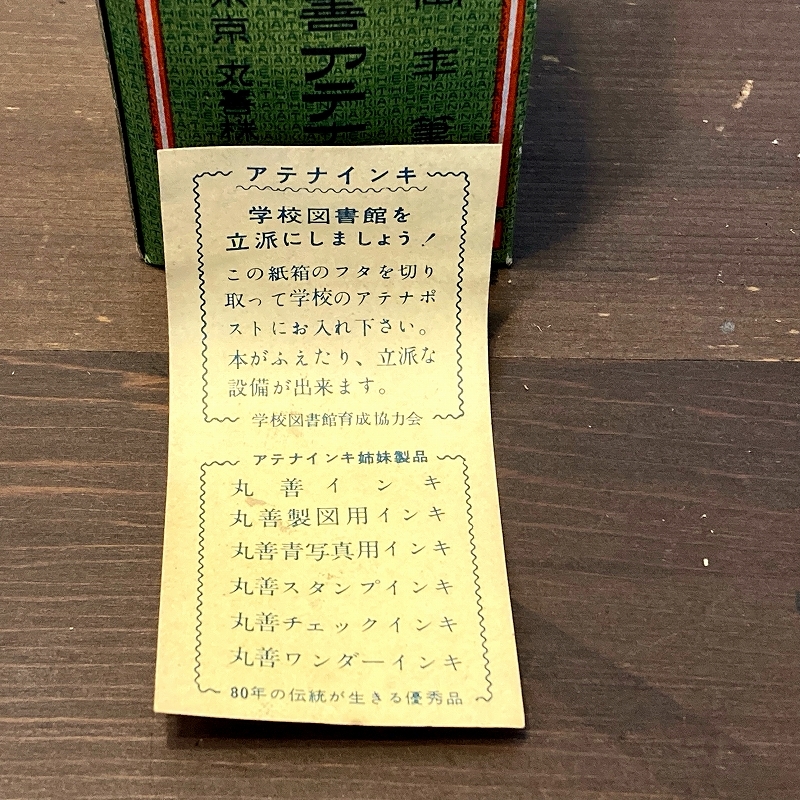 丸善アテナ
東京 丸善株
アテナインキ
学校図書館を
立派にしましょう！
この紙箱のフタを切り
取って学校のアテナポ
ストにお入れ下さい。
本がふえたり、立派な
設備が出来ます。
学校図書館育成協力会
アテナインキ姉妹製品
丸善インキ
丸善製図用インキ
丸善青写真用インキ
丸善スタンプインキ
丸善チェックインキ
丸善ワンダーインキ
80年の伝統が生きる優秀品